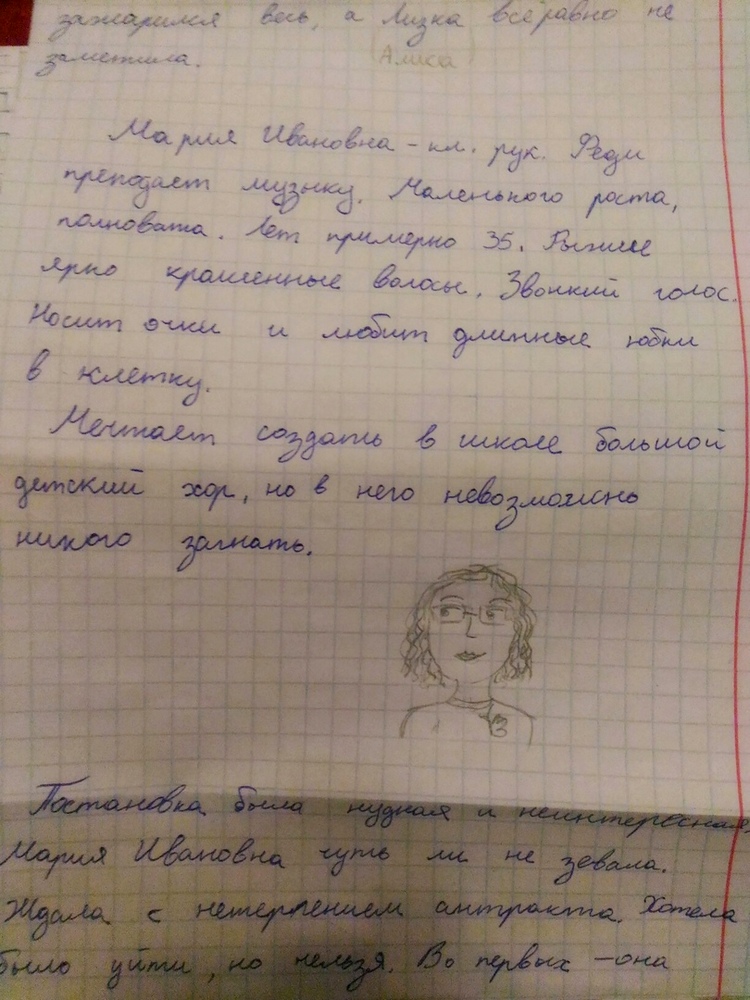 зажарился весь, а Лизка всёравно не
(Алиса)
заметила.
Мария Ивановна - кл. рук. Феди
преподаёт музыку. Маленького роста,
полновата. Лет примерно 35. Рыжие
ярко крашенные волосы. Звонкий голос.
Носит очки и любит длинные юбки
в клетку.
Мечтает создать в школе большой
детский хор, но в него невозможно
никого загнать.
Постановка была нудная и неинтересная.
Мария Ивановна чуть ли не зевала.
Ждала с нетерпением антракта. Хотела
было уйти, но нельзя. Во первых - она